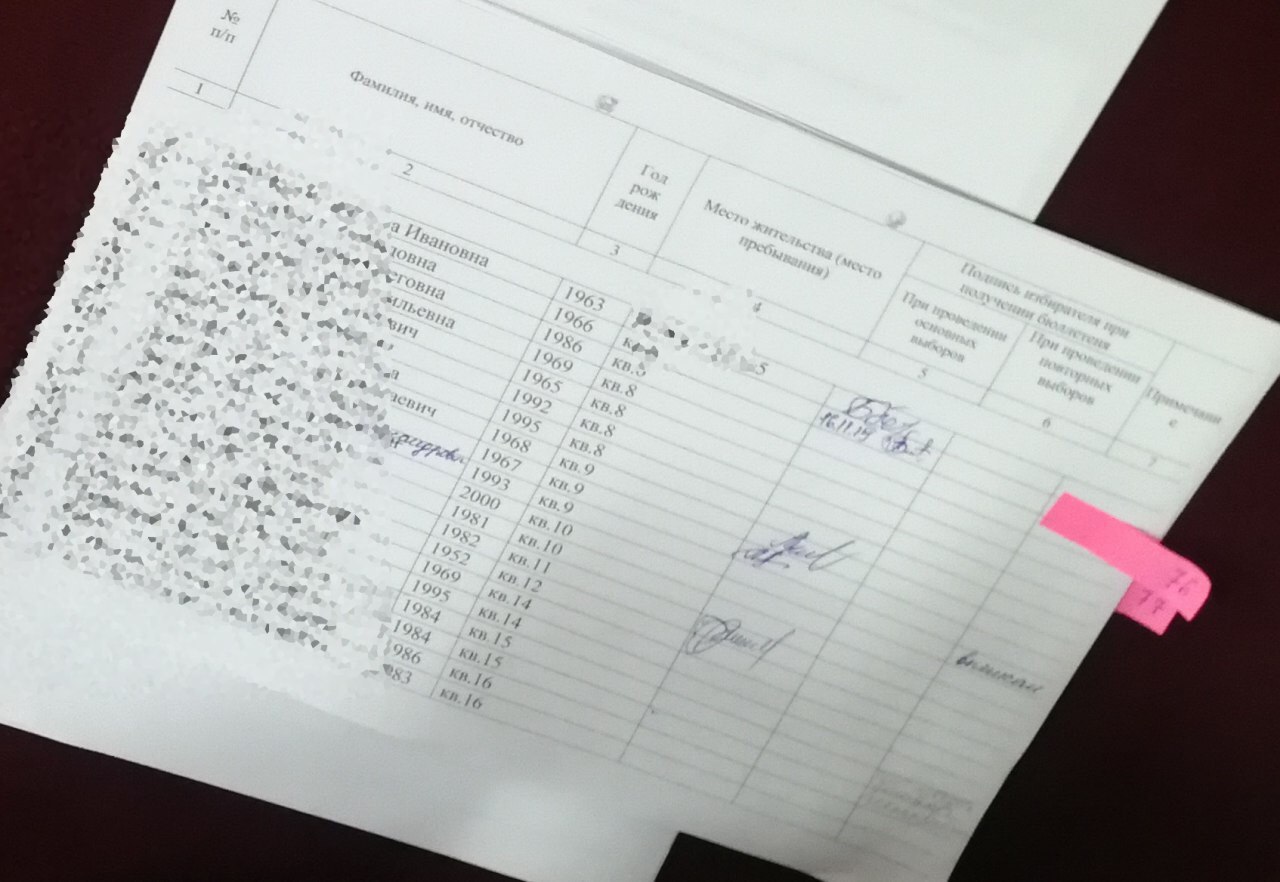 №
п/п
Фамилия, имя, отчество
Год
рож
дения
Место жительства (место
пребывания)
Подпись избирателя при
получении бюллетеня
При проведении
основных
выборов
При проведении
повторных
выборов
Примечани
е
1
2
3
4
5
6
7
а Ивановна
1963
ловна
1966
еговна
1986
кв.8
ильевна
1969
кв.8
вич
1965
кв.8
1992
кв.8
а
1995
кв.8
аевич
1968
кв.9
1967
кв.9
1993
кв.9
2000
кв.10
1981
кв.10
1982
кв.11
1952
кв.12
1969
кв.14
1995
кв.14
1984
кв.15
1984
кв.15
986
кв.16
983
кв.16
76
77